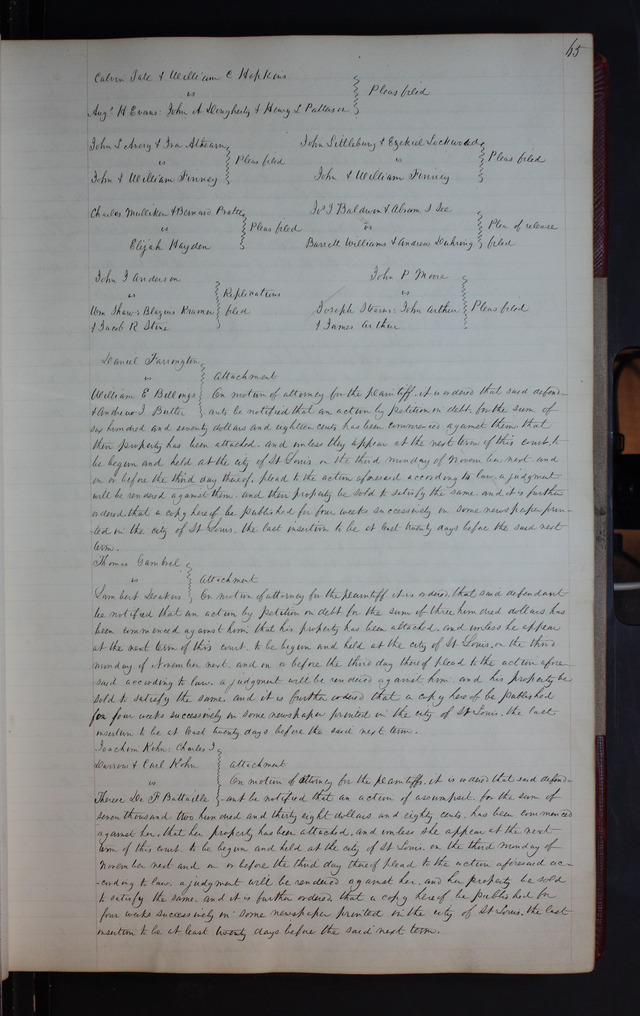 65
Calvin Tate & William C Hopkins
vs
Augs H Evans: John A Dougherty & Henry L Patterson
Pleas filed
John S Avery & Ira Athearn
vs
John & William Finney
Pleas filed
John Littlebury & Ezekiel Lockwood
vs
John & William Finney
Pleas filed
Charles Mulliken & Bernard Pratte
vs
Elijah Hayden
Pleas filed
Baldwin & Abram J Lee
vs
Barrett Williams & Andrew
Plea of release
filed
John F Anderson
vs
Wm Shaw: Blazius Kramer
& Jacob R Stine
Replications
filed
John P Moore
vs
Joseph Stearns: John Arthur
& James Arthur
Pleas filed
Daniel Farrington
vs
William E Billings
& Andrew J Butler
Attachment
On motion of attorney for the plaintiff, it is ordered that said defend-
-ants be notified that an action by petition on debt, for the sum of
six hundred and seventy dollars and eighteen cents has been commenced against them that
their property has been attached, and unless they appear at the next term of this court, to
be begun and held at the city of St Louis on the third monday of November next and
on or before the third day thereof, plead to the action aforesaid according to law, a judgment
will be rendered against them, and their property be sold to satisfy the same, and it is further
ordered that a copy hereof be published for four weeks successively in some newspaper prin-
-ted in the city of St Louis, the last insertion to be at least twenty days before the said next
term.
Thomas Gambrel
vs
Lambert Deakers
Attachment
On motion of attorney for the plaintiff it is ordered, that said defendant
be notified that an action by petition on debt for the sum of three hundred dollars has
been commenced against him: that his property has been attached, and unless he appear
at the next term of this court, to be begun and held at the city of St Louis, on the third
monday of November next, and on or before the third day thereof plead to the action afore-
said according to law, a judgment will be rendered against him, and his property be
sold to satisfy the same, and it is further ordered that a copy hereof be published
for four weeks successively in some newspaper printed in the city of St Louis, the last
insertion to be at least twenty days before the said next term.
Joachim Kohn: Charles J
Darrow & Carl Kohn
vs
Therese De F Battaille
attachment
On motion of attorney for the plaintiffs, it is ordered that said defend-
-ant be notified that an action of assumpsit, for the sum of
seven thousand two hundred and thirty eight dollars and eighty cents, has been commenced
against her, that her property has been attached, and unless she appear at the next
term of this court, to be begun and held at the city of St Louis, on the third monday of
November next and on or before the third day thereof plead to the action aforesaid ac-
-cording to law, a judgment will be rendered against her, and her property be sold
to satisfy the same and it is further ordered, that a copy hereof be published for
four weeks successively in some newspaper printed in the city of St Louis, the last
insertion to be at least twenty days before the said next term.